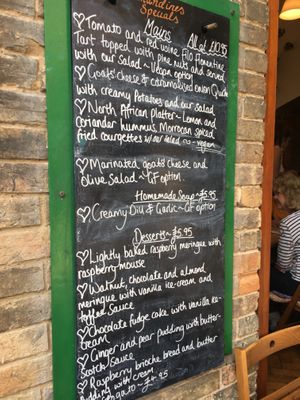 Specials
Mains All at £10.95
♡Tomato and red wine Filo florentine
Tart topped with pine nuts and served
with our salad ~ Vegan option
♡Goats cheese & caramelised onion Quiche
with creamy Potatoes and our Salad
♡North African platter ~ Lemon and
Coriander hummus, Morrocan spiced
fried courgettes w/our salad ~ vegan
♡Marinated goats cheese and
olive Salad ~ GF option
Homemade Soup ~ £5.95
♡Creamy Dill & Garlic ~ GF option
Desserts ~ £5.95
♡Lightly baked raspberry meringue with
raspberry mousse
♡Walnut, chocolate and almond
meringue with vanilla ice-cream and
toffee Sauce
♡Chocolate fudge cake with vanilla ice-
cream
♡Ginger and pear pudding with butter-
Scotch sauce
♡Raspberry brioche bread and butter
pudding with cream
~ £4.95